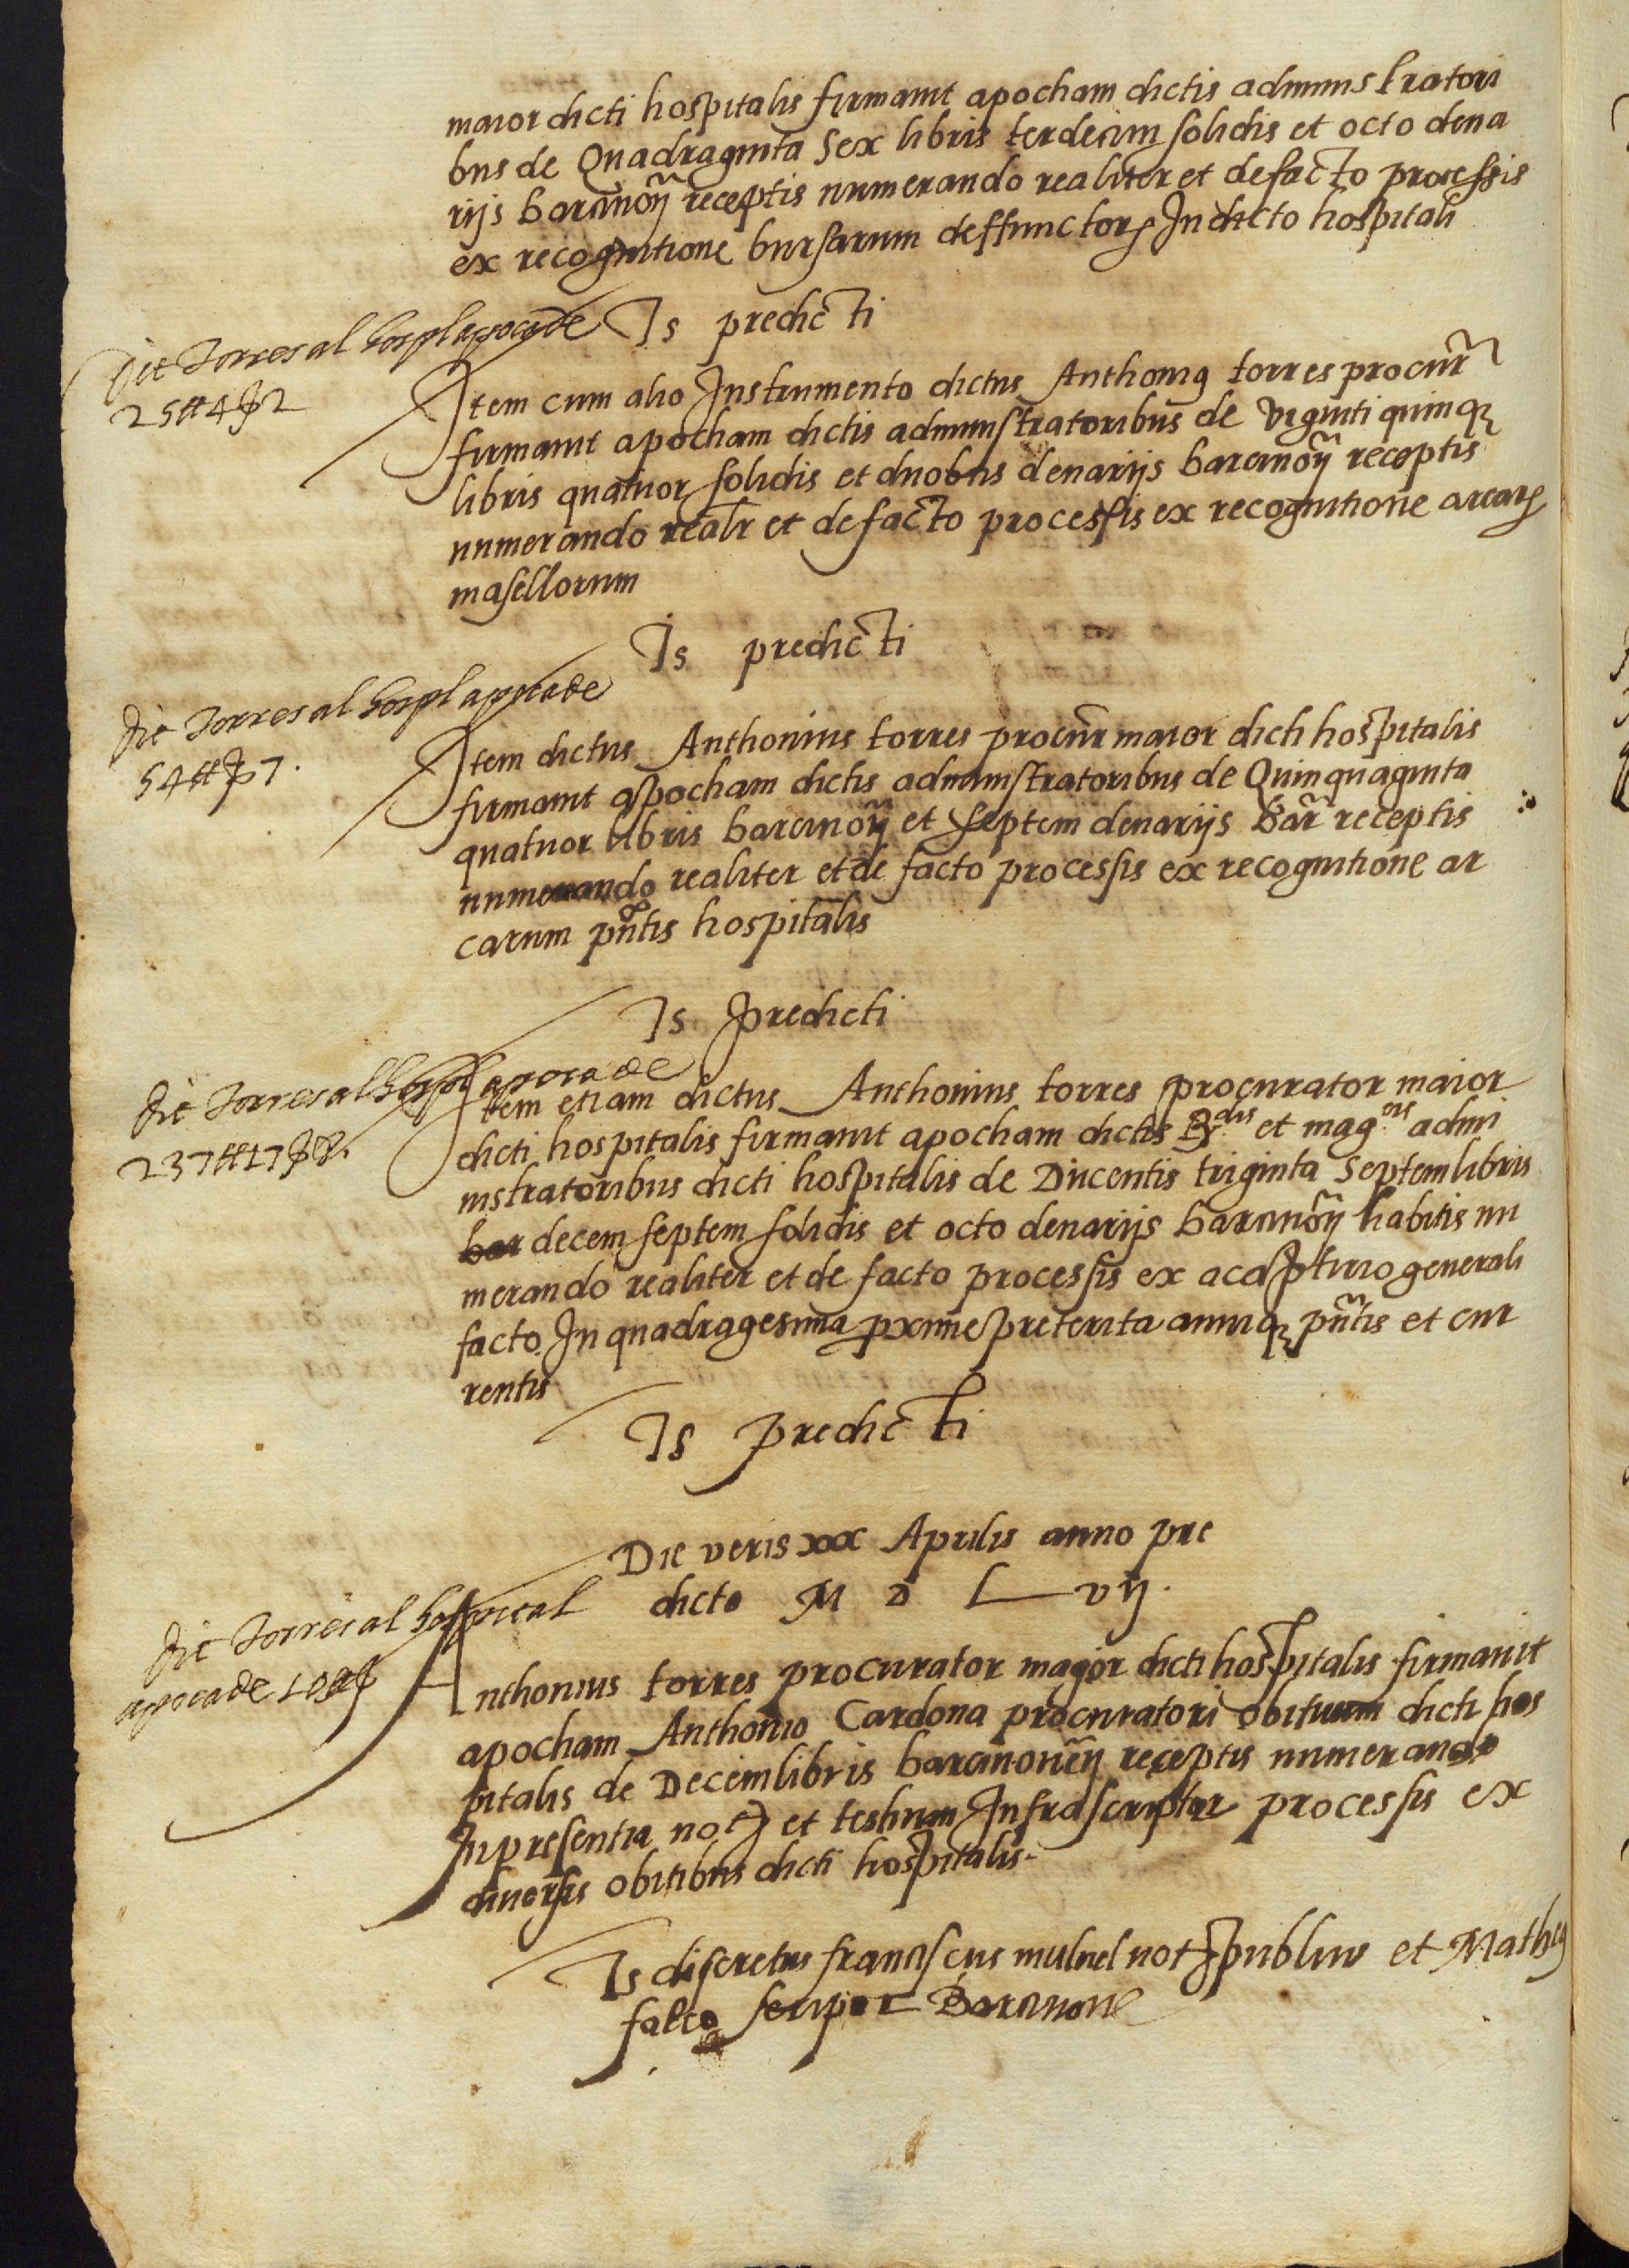 maior dicti hospitalis firmauit apocham dictis administratori
bus de Quadraginta Sex libris terdecim solidis et octo dena
rijs barcinoñ receptis numerando realiter et de facto processis
ex recognitione bursarum deffunctoꝝ In dicto hospitali
Ts predicti
Dit Torres al hospl apoca de
25 ₶ 4 ẞ 2
Item cum alio Instrumento dictus Anthoniꝰ torres procur̃
firmauit apocham dictis administratoribus de viginti quinqꝫ
libris quatuor solidis et duobus denarijs barcinoñ receptis
numerando realr et de facto processis ex recognitione arcaꝝ
masellorum
Ts predicti
Dit Torres al hospl apoca de
54 ₶ ẞ 7.
Item dictus Anthonius torres procur̃ maior dicti hospitalis
firmauit apocham dictis administratoribus de Quinquaginta
quatuor libris barcinoñ et septem denarijs bar̃ receptis
numerando realiter et de facto processis ex recognitione ar
carum pñtis hospitalis
Ts predicti
Dit Torres al hospl apoca de
237 ₶ 17 ẞ 8.
Item etiam dictus Anthonius torres procurator maior
dicti hospitalis firmauit apocham dictis Rdis et magcis admi
nistratoribus dicti hospitalis de Ducentis triginta septem libris
bar decem septem solidis et octo denarijs barcinoñ habitis nu
merando realiter et de facto processis ex acaptirio generali
facto In quadragesima pxime preterita anniqꝫ pñtis et cur
rentis
Ts predicti
Die veris xx Aprilis anno pre
dicto M D L vij.
Dit Torres al hospital
apoca de 10 ₶ ẞ
Anthonius torres procurator major dicti hospitalis firmauit
apocham Anthonio Cardona procuratori obituum dicti hos
pitalis de Decem libris barcinoneñ receptis numerando
In presentia not et testium Infrascriptor processis ex
diuersis obitibus dicti hospitalis.
Ts discretus franciscus mulnel not publius et Mathꝰ
falco scripor Barcinone